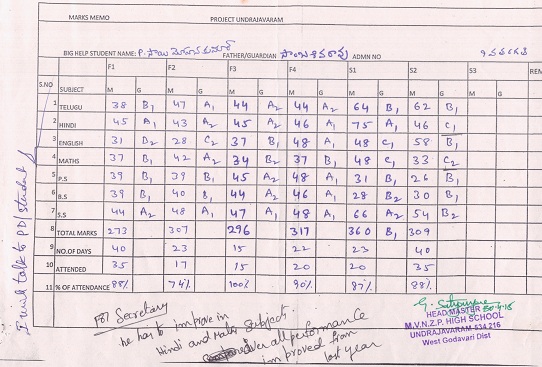 MARKS MEMO PROJECT UNDRAJAVARAM
BIG HELP STUDENT NAME: P. FATHER/GUARDIAN ADMN NO
F1 F2 F3 F4 S1 S2 S3 REM
S.NO SUBJECT M G M G M G M G M G M G M G
1 TELUGU 38 B1 47 A1 44 A2 44 A2 64 B1 62 B1
2 HINDI 45 A1 43 A2 45 A2 46 A1 75 A1 46 C1
3 ENGLISH 31 B2 28 C2 37 B1 48 A1 48 C1 58 B1
4 MATHS 37 B1 42 A2 34 B2 37 B1 48 C1 33 C2
5 P.S 39 B1 39 B1 45 A2 48 A1 31 B1 26 B1
6 B.S 39 B1 40 B1 44 A2 46 A1 28 B2 30 B1
7 S.S 44 A2 48 A1 47 A1 48 A1 66 A2 54 B2
8 TOTAL MARKS 273 307 296 317 360 B1 309
9 NO.OF DAYS 40 23 15 22 23 40
10 ATTENDED 35 17 15 20 20 35
11 % OF ATTENDANCE 88% 74% 100% 90% 87% 88%
I will talk to PD/student
For Secretary
he has to improve in
Hindi and Maths Subject
over all performance
improved from
last year
HEAD MASTER
M.V.N.Z.P. HIGH SCHOOL
UNDRAJAVARAM-534 216
West Godavari Dist